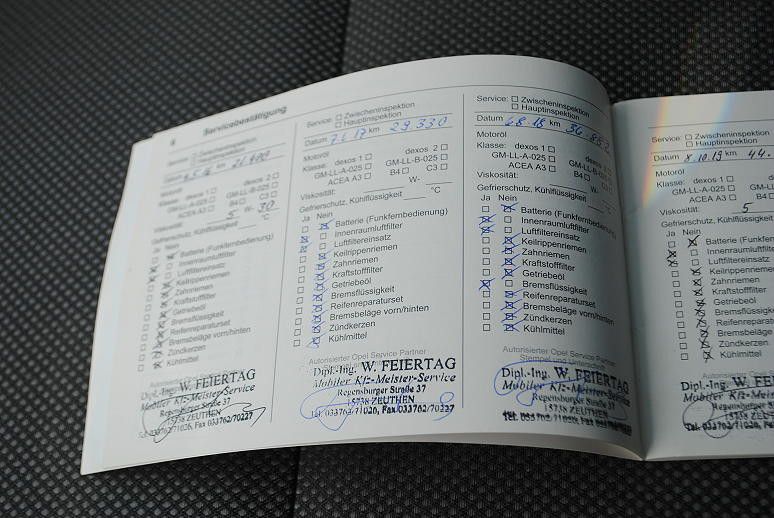 Servicebestätigung
Service: Zwischeninspektion
Hauptinspektion
Datum km 21.400
Motoröl
Klasse: dexos 1 dexos 2
GM-LL-A-025 GM-LL-B-025
ACEA A3 B4 C3
Viskosität: 5 W- 30
Gefrierschutz, Kühlflüssigkeit °C
Ja Nein
Batterie (Funkfernbedienung)
Innenraumluftfilter
Luftfiltereinsatz
Keilrippenriemen
Zahnriemen
Kraftstofffilter
Getriebeöl
Bremsflüssigkeit
Reifenreparaturset
Bremsbeläge vorn/hinten
Zündkerzen
Kühlmittel
Autorisierter Opel Service Partner
Dipl.-Ing. W. FEIERTAG
Mobiler Kfz-Meister-Service
Regensburger Straße 37
15738 ZEUTHEN
Tel. 033762/71026, Fax 033762/70227
Service: Zwischeninspektion
Hauptinspektion
Datum 7.6.17 km 29.330
Motoröl
Klasse: dexos 1 dexos 2
GM-LL-A-025 GM-LL-B-025
ACEA A3 B4 C3
Viskosität: W-
Gefrierschutz, Kühlflüssigkeit °C
Ja Nein
Batterie (Funkfernbedienung)
Innenraumluftfilter
Luftfiltereinsatz
Keilrippenriemen
Zahnriemen
Kraftstofffilter
Getriebeöl
Bremsflüssigkeit
Reifenreparaturset
Bremsbeläge vorn/hinten
Zündkerzen
Kühlmittel
Autorisierter Opel Service Partner
Dipl.-Ing. W. FEIERTAG
Mobiler Kfz-Meister-Service
Regensburger Straße 37
15738 ZEUTHEN
Tel. 033762/71026, Fax 033762/70227
Service: Zwischeninspektion
Hauptinspektion
Datum 6.8.18 km
Motoröl
Klasse: dexos 1 dexos 2
GM-LL-A-025 GM-LL-B-025
ACEA A3 B4 C3
Viskosität: W-
Gefrierschutz, Kühlflüssigkeit °C
Ja Nein
Batterie (Funkfernbedienung)
Innenraumluftfilter
Luftfiltereinsatz
Keilrippenriemen
Zahnriemen
Kraftstofffilter
Getriebeöl
Bremsflüssigkeit
Reifenreparaturset
Bremsbeläge vorn/hinten
Zündkerzen
Kühlmittel
Autorisierter Opel Service Partner
Stempel und Unterschrift
Dipl.-Ing. W. FEIERTAG
Mobiler Kfz-Meister-Service
Regensburger Straße 37
15738 ZEUTHEN
Tel. 033762/71026, Fax 033762/70227
Service: Zwischeninspektion
Hauptinspektion
Datum 8.10.19 km 44.
Motoröl
Klasse: dexos 1
GM-LL-A-025
ACEA A3
Viskosität: 5
Gefrierschutz, Kühlflüssigkeit
Ja Nein
Batterie (Funkfernbedienung)
Innenraumluftfilter
Luftfiltereinsatz
Keilrippenriemen
Zahnriemen
Kraftstofffilter
Getriebeöl
Bremsflüssigkeit
Reifenreparaturset
Bremsbeläge vorn/hinten
Zündkerzen
Kühlmittel
Autorisierter Opel Service
Dipl.-Ing. W. FE
Mobiler Kfz-Meister
Regensburger St
15738 ZEUTH
Tel. 033762/71026, Fax